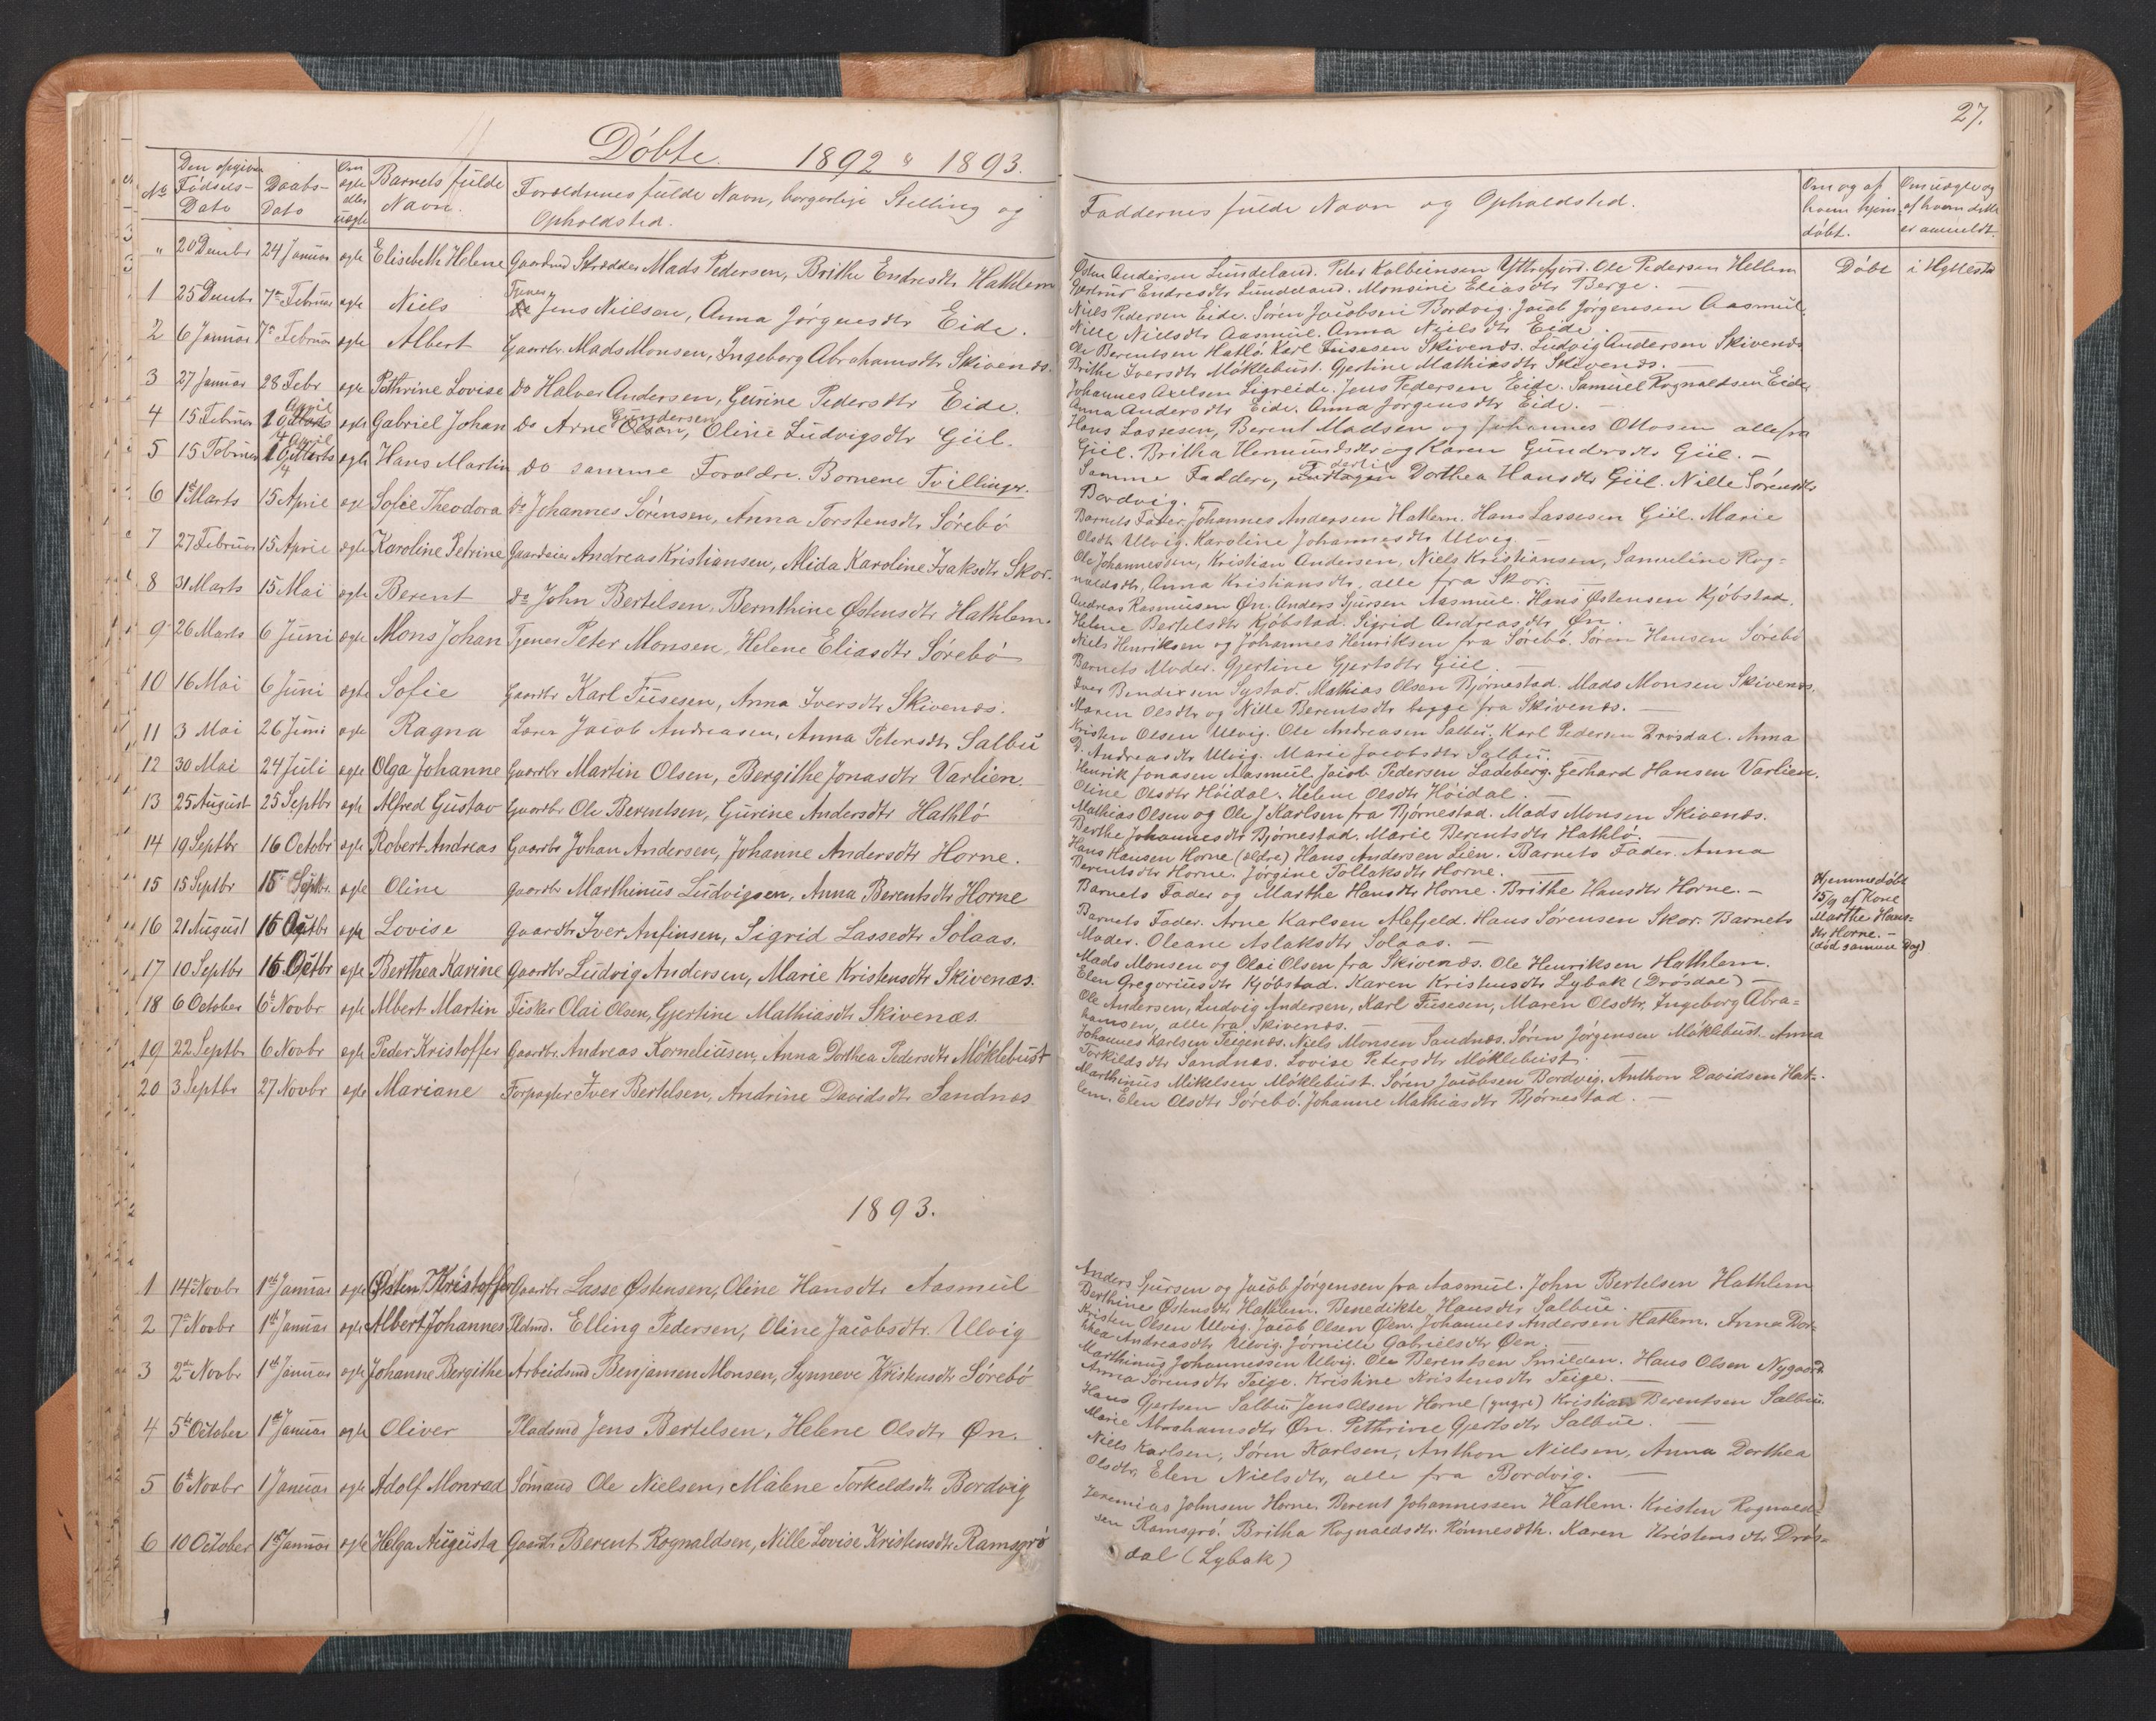 27.
Döbte. 1892 " 1893.
No
Den opgivne Födsels- Dato
Daabs- Dato
Om ægte eller uægte
Barnets fulde Navn.
Forældrenes fulde Navn, borgerlige Stilling og Opholdsted.
Faddernes fulde Navn og Opholdsted.
Om og af hvem hjem- döbt.
Om uægte og af hvem dette er anmeldt.
" 20 Decmbr 24 Januar ægte Elisabeth Helene Gaardmd Skrædder Mads Pedersen, Brithe Endresdtr Hathlem
Östen Andersen Lundeland. Peter Kolbeinsen Yttrefjord. Ole Pedersen Hellem
Gertrud Endresdtr Lundeland. Monsine Eliasdtr Berge. —
Döbt i Hyllestad
1 25 Decmbr 7de Februar ægte Niels Tjener Jens Nielsen, Anna Jörgensdtr Eide.
Niels Pedersen Eide. Sören Jacobsen Bordvig. Jacob Jörgensen Aasmul.
Nille Nielsdtr Aasmul. Anna Nielsdtr Eide.
2 6 Januar 7de Februar ægte Albert Gaardbr. Mads Monsen, Ingeborg Abrahamsdtr Skivenæs.
Ole Berentsen Hatlö. Karl Tuesesen Skivenæs. Ludvig Andersen Skivenæs
Brithe Iversdtr Möklebust. Gjertine Mathiasdtr Skivenæs. —
3 27 Januar 28 Febr ægte Pethrine Lovise do Halvor Andersen, Gurine Pedersdtr Eide.
Johannes Axelsen Ligreide. Jens Pedersen Eide. Samuel Rognaldsen Eide
Anna Andersdtr Eide. Anna Jörgensdtr Eide. —
4 15 Februar 10 April ægte Gabriel Johan do Arne Gundersen, Oline Ludvigsdtr Giil.
Hans Lassesen, Berent Madsen og Johannes Ottosen alle fra
Giil. Britha Hermundsdtr og Karen Gundersdtr Giil. —
5 15 Februar 10/4 April ægte Hans Martin do samme Forældre. Börnene Tvillinger.
Samme Faddere, og dertil Dorthea Hansdtr Giil. Nille Sörensdtr
Bordvig.
6 1ste Marts 15 April ægte Sofie Theodora do Johannes Sörensen, Anna Torstensdtr Sörebö
Barnets Fader. Johannes Andersen Hatlem. Hans Lassesen Giil. Marie
Olsdtr Ulvig. Karoline Johannesdtr Ulvig —
7 27 Februar 15 April ægte Karoline Petrine Gaardeier Andreas Kristiansen, Alida Karoline Isaksdtr Skor.
Ole Johannessen, Kristian Andersen, Niels Kristiansen, Samueline Rog-
naldsdtr, Anna Kristiansdtr, alle fra Skor. —
8 31 Marts 15 Mai ægte Berent do John Bertelsen, Bernthine Östensdtr Hathlem.
Andreas Rasmusen Ön. Anders Sjursen Aasmul. Hans Östensen Kjöbstad.
Helene Bertelsdtr Kjöbstad. Sigrid Andreasdtr Ön.
9 26 Marts 6 Juni ægte Mons Johan Tjener Peter Monsen, Helene Eliasdtr Sörebö
Niels Henriksen og Johannes Henriksen fra Sörebö. Sören Hansen Sörebö
Barnets Moder. Gjertine Gjertsdtr Giil. —
10 16 Mai 6 Juni ægte Sofie Gaardbr Karl Tuesesen, Anna Iversdtr Skivenæs.
Iver Bendixsen Systad. Mathias Olsen Björnestad. Mads Monsen Skivenæs.
Maren Olsdtr og Nille Berentsdtr begge fra Skivenæs. —
11 3 Mai 26 Juni ægte Ragna Lærer Jacob Andreasen, Anna Petersdtr Salbu
Kristen Olsen Ulvig. Ole Andreasen Salbu. Karl Pedersen Drösdal. Anna
D. Andreasdtr Ulvig. Marie Jacobsdtr Salbu.
12 30 Mai 24 Juli ægte Olga Johanne Gaardbr Martin Olsen, Bergithe Jonasdtr Varlien.
Henrik Jonasen Aasmul. Jacob Pedersen Ladeberg. Gerhard Hansen Varlien.
Oline Olsdtr Höidal. Helene Olsdtr Höidal. —
13 25 August 25 Septbr ægte Alfred Gustav Gaardbr Ole Berentsen, Gurine Andersdtr Hathlö
Mathias Olsen og Ole J Karlsen fra Björnestad. Mads Monsen Skivenæs.
Berthe Johannesdtr Björnestad. Marie Berentsdtr Hathlö. —
14 19 Septbr 16 Octobr ægte Robert Andreas Gaardbr Johan Andersen, Johanne Andersdtr Horne.
Hans Hansen Horne (ældre) Hans Andersen Lien. Barnets Fader. Anna
Berentsdtr Horne. Jörgine Tollaksdtr Horne. —
15 15 Septbr 15 Septbr. ægte Oline Gaardbr Marthinus Ludvigsen, Anna Berentsdtr Horne
Barnets Fader og Marthe Hansdtr Horne. Brithe Hansdtr Horne. —
Hjemmedöbt
15/9 af Kone
Marthe Hans-
dtr Horne. —
(död samme Dag)
16 21 August 16 Octbr ægte Lovise Gaardbr Iver Anfinsen, Sigrid Lassedtr Solaas.
Barnets Fader. Arne Karlsen Alefjeld. Hans Sörensen Skor. Barnets
Moder. Oleane Aslaksdtr Solaas. —
17 10 Septbr 16 Octbr ægte Berthea Karine Gaardbr Ludvig Andersen, Marie Kristensdtr Skivenæs.
Mads Monsen og Olai Olsen fra Skivenæs. Ole Henriksen Hathlem.
Elen Gregoriusdtr Kjöbstad. Karen Kristensdtr Lybak (Drösdal) —
18 6 October 6te Novbr ægte Albert Martin Fisker Olai Olsen, Gjertine Mathiasdtr Skivenæs.
Ole Andersen, Ludvig Andersen, Karl Tuesesen, Maren Olsdtr, Ingeborg Abra-
hamsen, alle fra Skivenæs. —
19 22 Septbr 6 Novbr ægte Peder Kristoffer Gaardbr. Andreas Korneliusen, Anna Dorthea Pedersdtr Möklebust
Johannes Karlsen Teigenæs. Niels Monsen Sandnæs. Sören Jörgensen Möklebust. Anna
Torkildsdtr Sandnæs. Lovise Petersdtr Möklebust. —
20 3 Septbr 27 Novbr ægte Mariane Forpagter Iver Bertelsen, Andrine Davidsdtr Sandnæs
Marthinus Mikelsen Möklebust. Sören Jacobsen Bordvig. Anthon Davidsen Hat-
lem. Elen Olsdtr Sörebö. Johanne Mathiasdtr Björnestad. —
1893.
1 14de Novbr 1ste Januar ægte Østen Kristoffer Gaardbr Lasse Östensen, Oline Hansdtr Aasmul
Anders Sjursen og Jacob Jörgensen fra Aasmul. John Bertelsen Hathlem
Berthine Östensdtr Hathlem. Benedikte Hansdtr Salbue.
2 7de Novbr 1ste Januar ægte Albert Johannes Pladsmd. Elling Pedersen, Oline Jacobsdtr. Ulvig
Kristen Olsen Ulvig. Jacob Olsen Öen. Johannes Andersen Hatlem. Anna Dor-
thea Andreasdtr Ulvig. Jörnille Gabrielsdtr Öen. —
3 2den Novbr 1ste Januar ægte Johanne Bergithe Arbeidsmd Benjamen Monsen, Synneve Kristensdtr Sörebö
Marthinus Johannessen Ulvig. Ole Berentsen Smilden. Hans Olsen Nygaard.
Anna Sörensdtr Teige. Kristine Kristensdtr Teige. —
4 5te October 1ste Januar ægte Oliver Pladsmd Jens Bertelsen, Helene Olsdtr Øn.
Hans Gjertsen Salbu Jens Olsen Horne (yngre) Kristian Berentsen Salbu.
Marie Abrahamsdtr Øn. Pethrine Gjertsdtr Salbue. —
5 6te Novbr 1 Januar ægte Adolf Monrad Sömand Ole Nielsen, Malene Torkeldsdtr Bordvig
Niels Karlsen, Sören Karlsen, Anthon Nielsen, Anna Dorthea
Olsdtr, Elen Nielsdtr, alle fra Bordvig. —
6 10 October 1ste Januar ægte Helga Augusta Gaardbr Berent Rognaldsen, Nille Lovise Kristensdtr Ramsgrö
Jeremias Johnsen Horne. Berent Johannessen Hatlem. Kristen Rognald-
sen Ramsgrö. Britha Rognaldsdtr. Rönnesdth. Karen Kristensdtr Drös-
dal (Lybak)